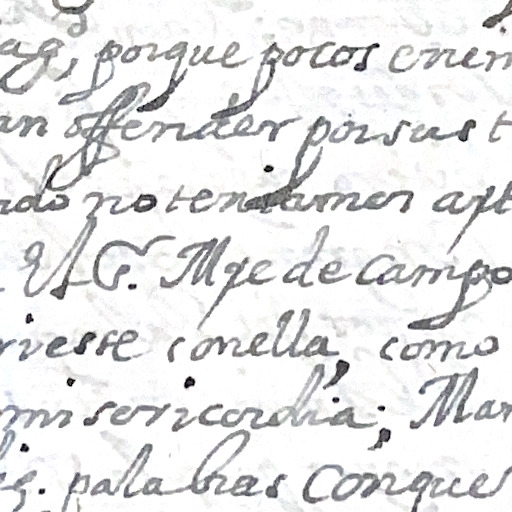 porque pocos enem
an offender por sus t
ndo no teniamos apt
El G. Mre de campo
viesse conella, como
misericordia; Mar
palabras conques